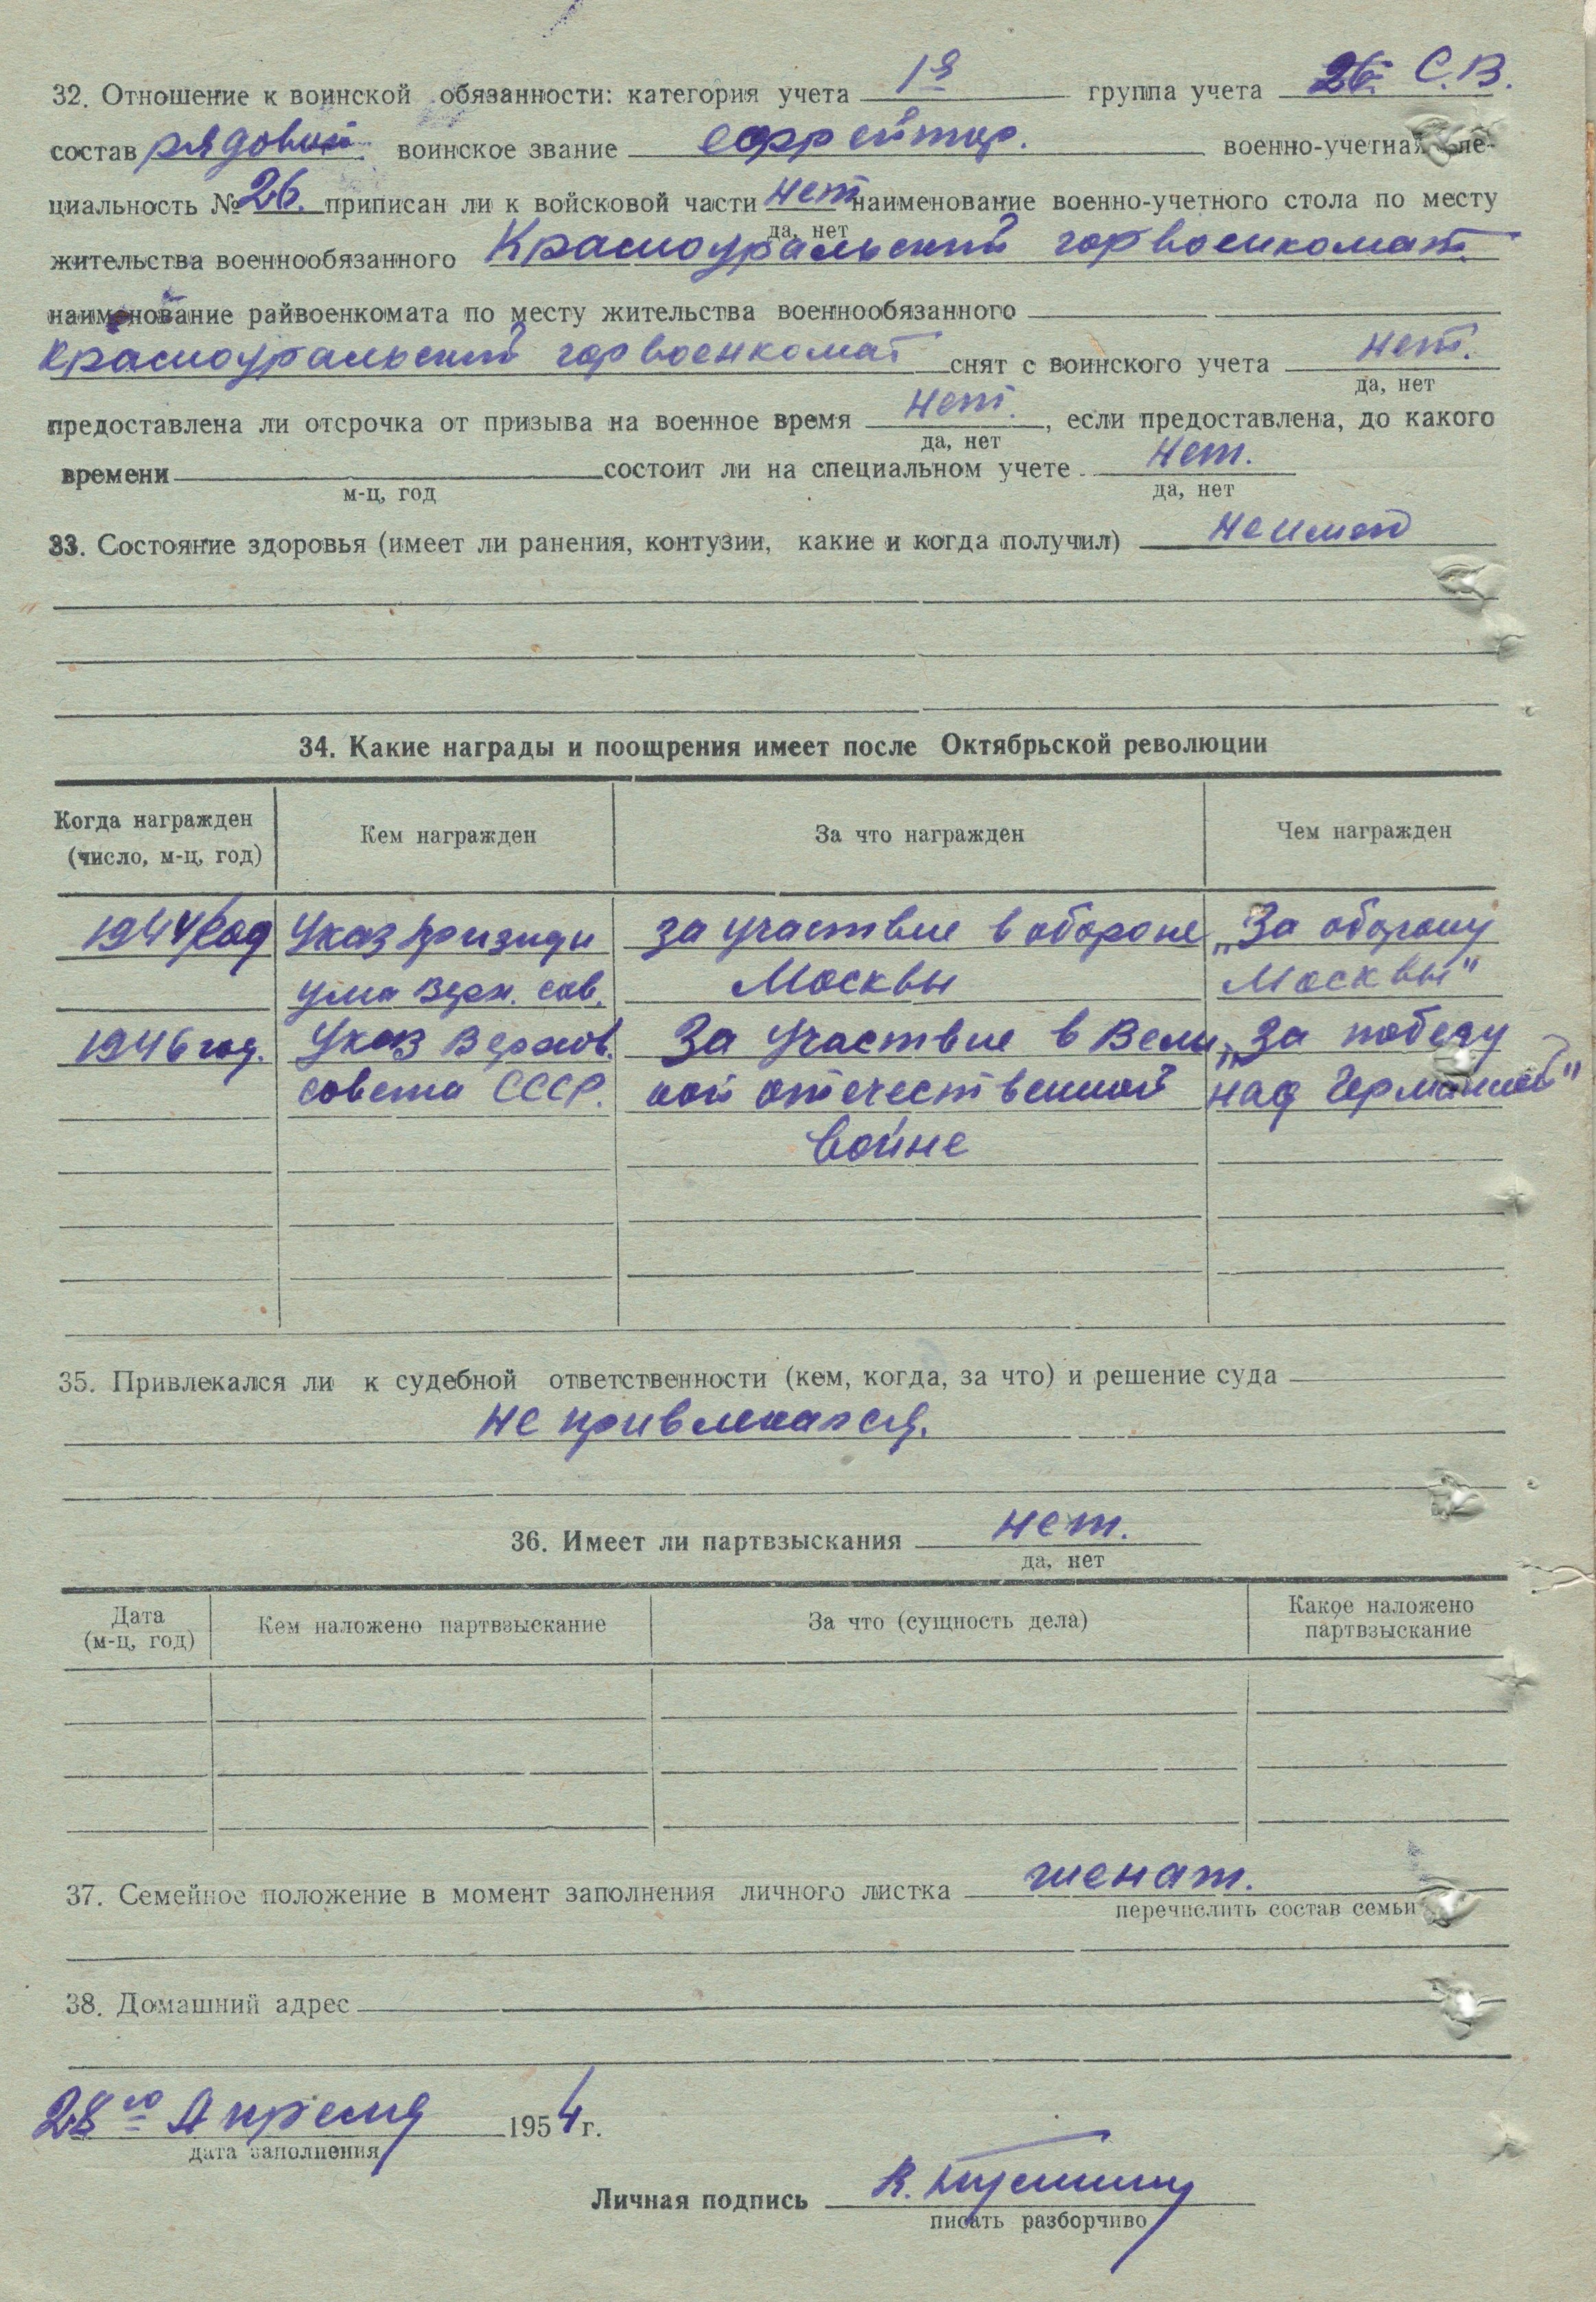 32. Отношение к воинской обязанности: категория учета 1я группа учета С.В.
состав рядовой воинское звание ефрейтор. военно-учетная спе-
циальность № 26. приписан ли к войсковой части нет наименование военно-учетного стола по месту
да, нет
жительства военнообязанного Красноуральский горвоенкомат.
наименование райвоенкомата по месту жительства военнообязанного
Красноуральский горвоенкомат снят с воинского учета нет.
да, нет
предоставлена ли отсрочка от призыва на военное время нет., если предоставлена, до какого
да, нет
времени состоит ли на специальном учете нет.
м-ц, год да, нет
33. Состояние здоровья (имеет ли ранения, контузии, какие и когда получил) не имею
34. Какие награды и поощрения имеет после Октябрьской революции
Когда награжден Кем награжден За что награжден Чем награжден
(число, м-ц, год)
1944 год Указ президи за участвие в обороне „За оборону
ума Верх. сов. Москвы Москвы"
1946 год. Указ Верхов. За участвие в Вели „За победу
совета СССР. кой отечественной над Германией"
войне
35. Привлекался ли к судебной ответственности (кем, когда, за что) и решение суда
не привлекался.
36. Имеет ли партвзыскания нет.
да, нет
Дата Кем наложено партвзыскание За что (сущность дела) Какое наложено
(м-ц, год) партвзыскание
37. Семейное положение в момент заполнения личного листка женат.
перечислить состав семьи
38. Домашний адрес
28го Апреля 1954 г.
дата заполнения
Личная подпись
писать разборчиво